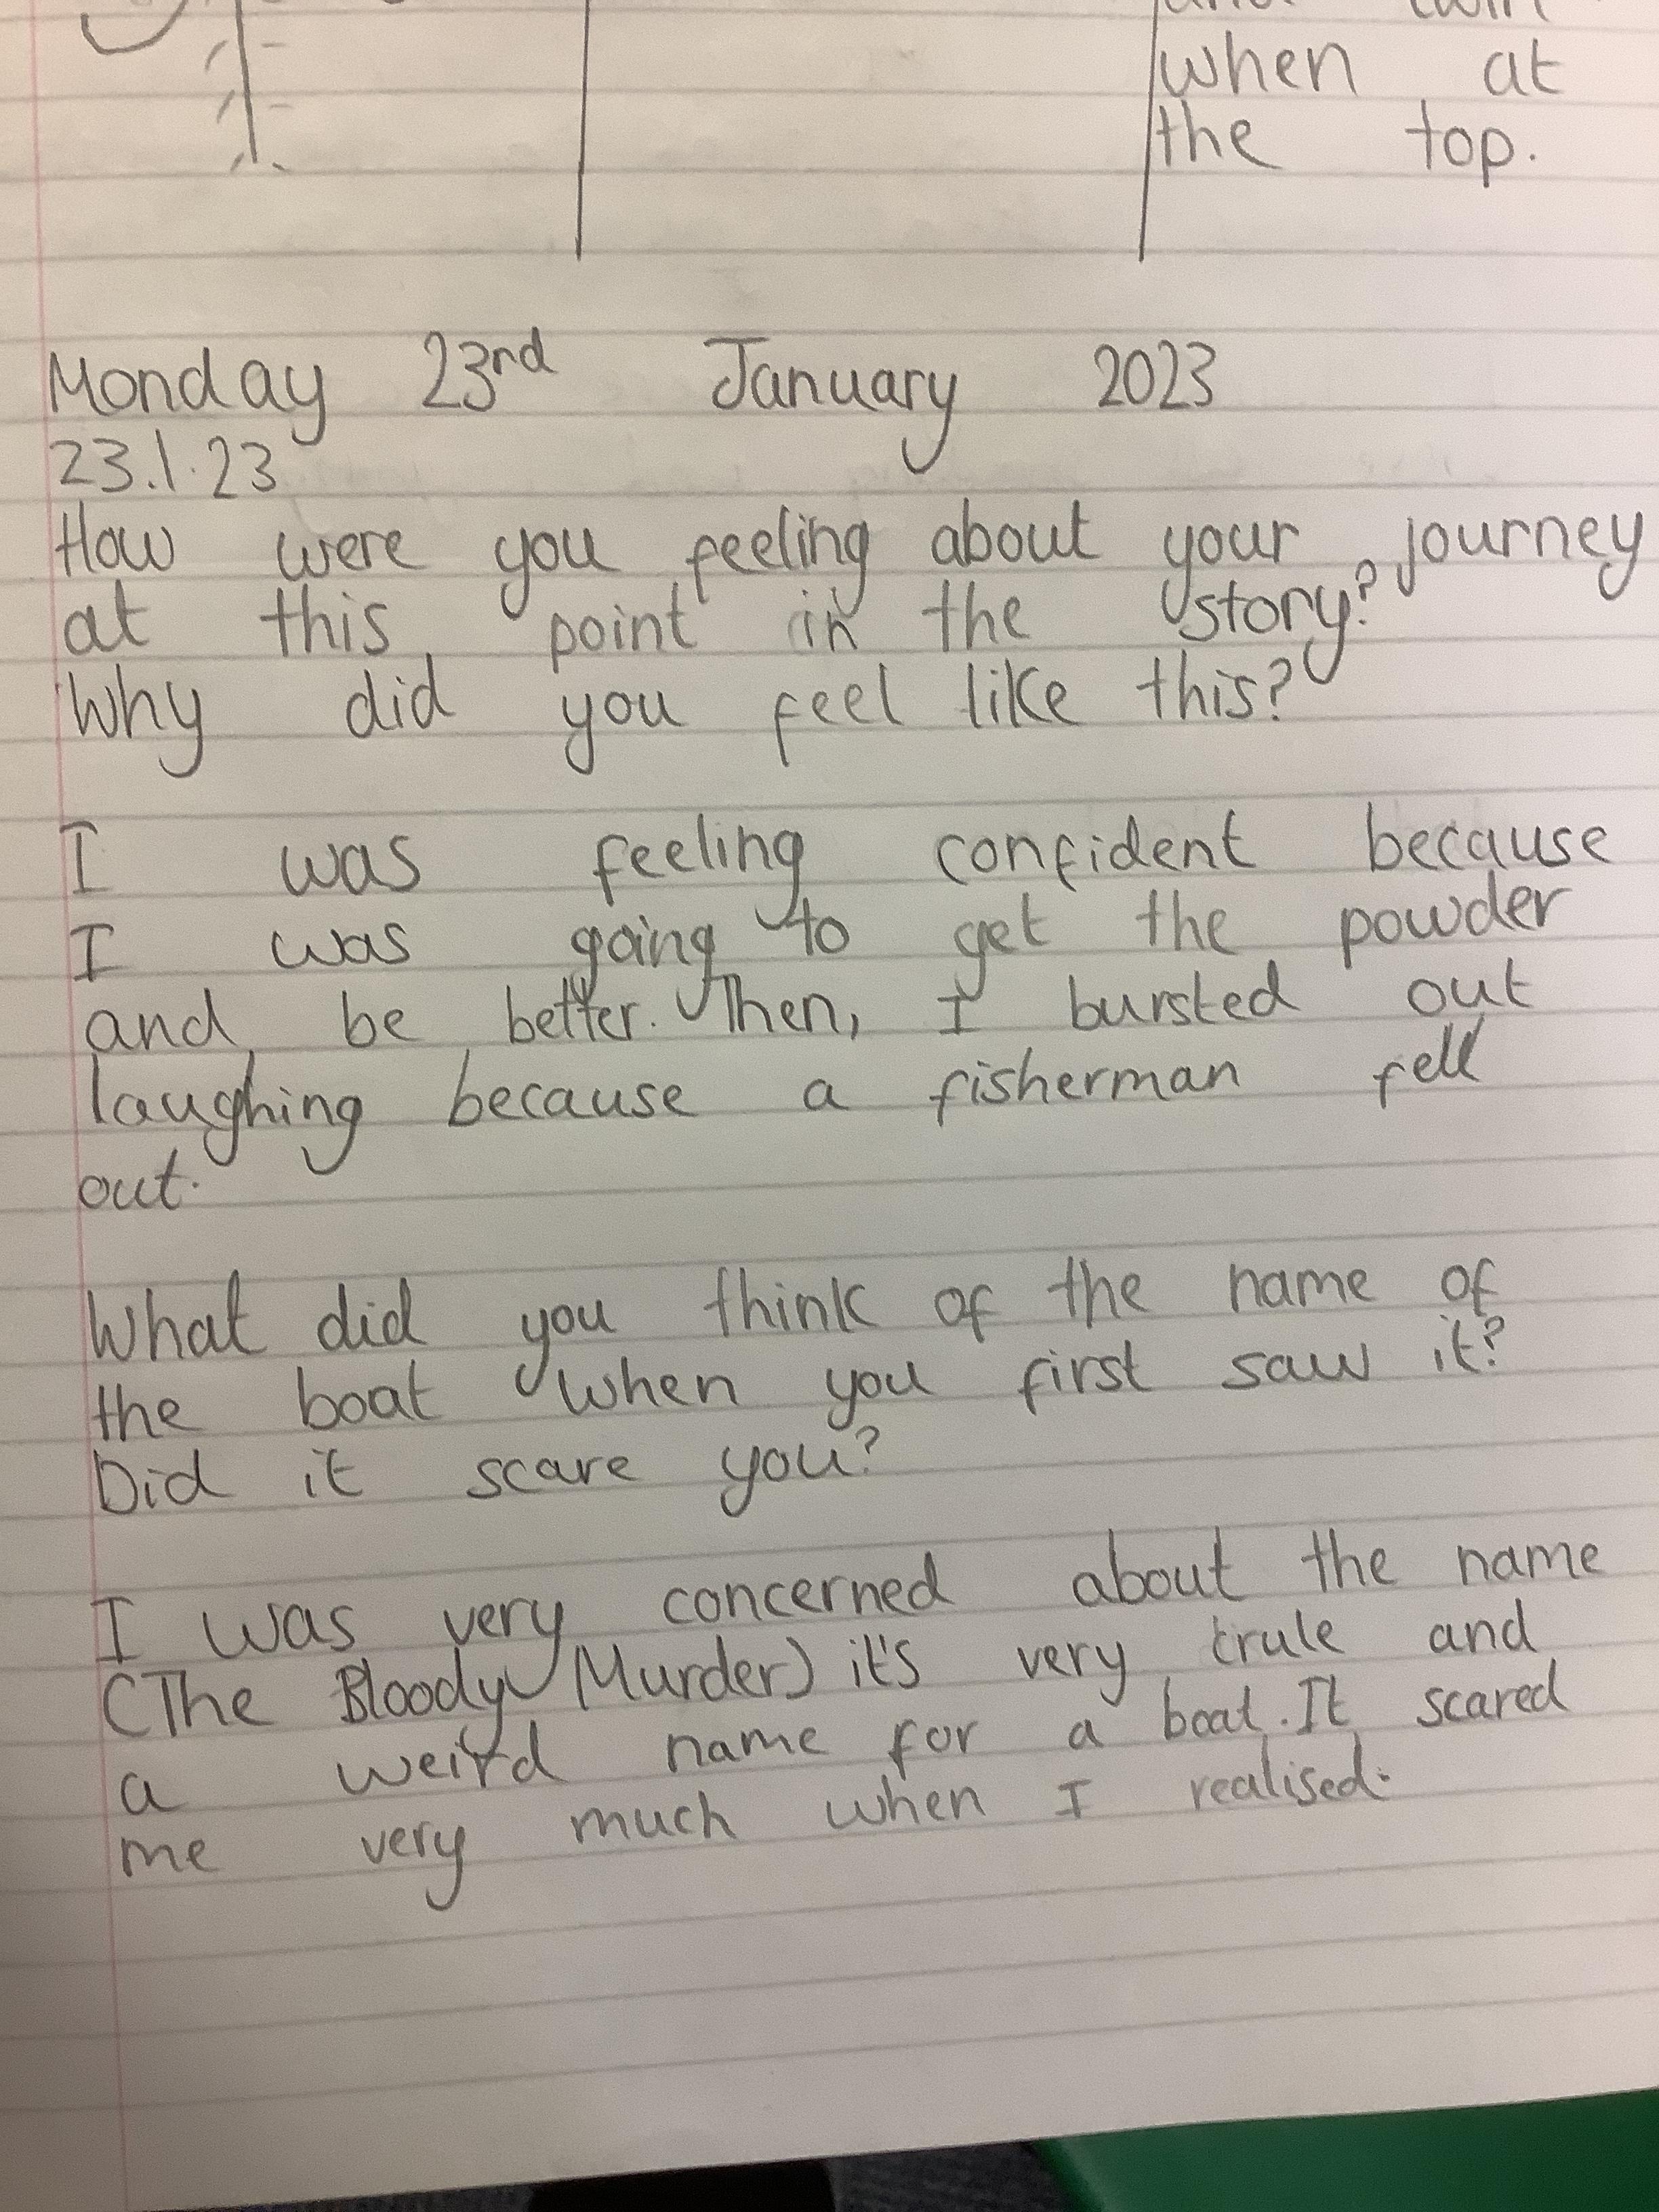 when at
the top.
Monday 23rd January 2023
23.1.23
How were you feeling about your journey
at this point in the story?
Why did you feel like this?
I was feeling confident because
I was going to get the powder
and be better. Then, I bursted out
laughing because a fisherman fell
out.
What did you think of the name of
the boat when you first saw it?
Did it scare you?
I was very concerned about the name
(The Bloody Murder) it's very crule and
a weird name for a boat. It scared
me very much when I realised.